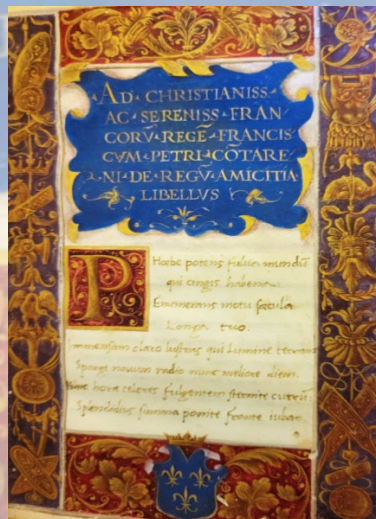 AD · CHRISTIANISS ·
AC · SERENISS · FRAN
CORV̄ · REGĒ · FRANCIS
CVM · PETRI · CŌTARE
NI · DE · REGV̄ · AMICITIA
LIBELLVS
Phœbe potens fulua mundū
qui cingis habena
Enumerans motu sæcula
Longa tuo.
Immensam claro lustras qui lumine terram
Spargis novum radio
diem.
Huc hora celeres fulgentem sternite currū
Splendidus summa ponite fronte iubar